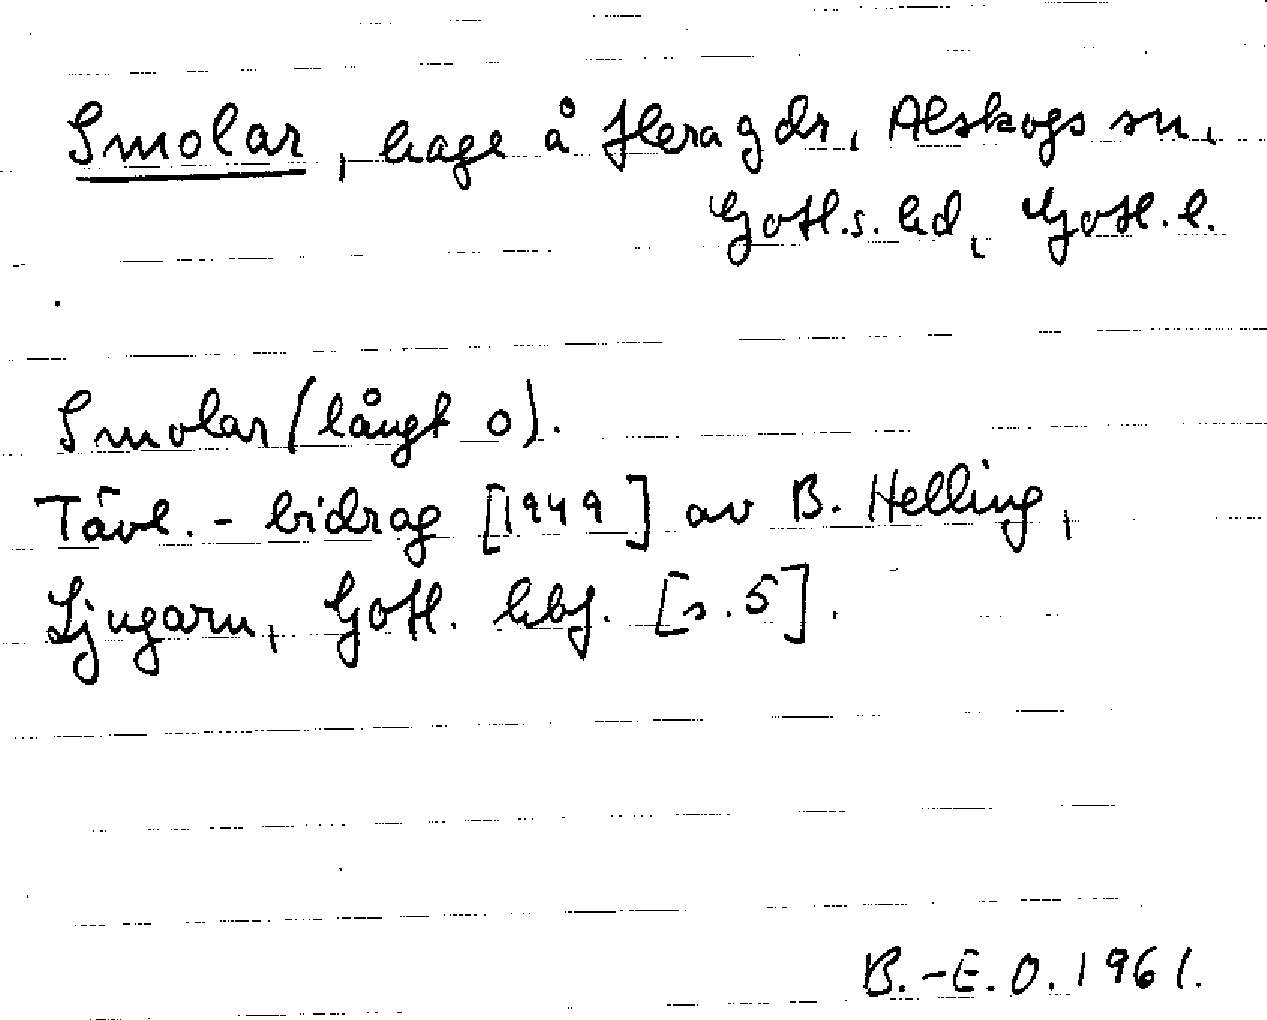 Smolar, hage å flera gdr, Alskogs sn,
Gotl.s. hd, Gotl. l.
Smolar (långt o).
Tävl.-bidrag [1949] av B. Helling,
Ljugarn, Gotl. hbf. [s. 5].
B.-E. O. 1961.